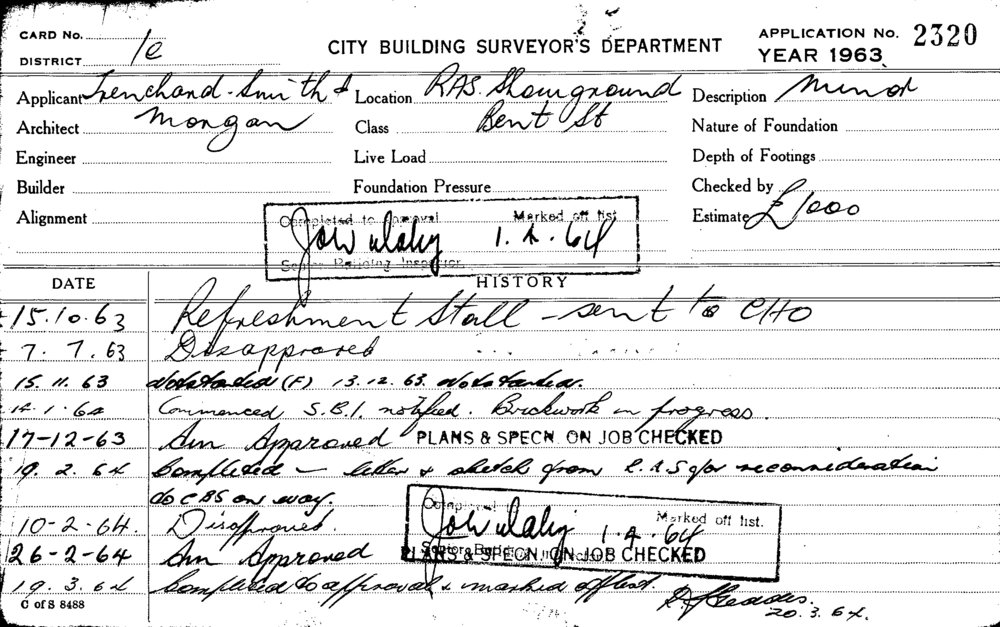 CARD No.
DISTRICT 1e
CITY BUILDING SURVEYOR'S DEPARTMENT
APPLICATION No. 2320
YEAR 1963
Applicant Trenchard-Smith &
Architect Morgan
Engineer
Builder
Alignment
Location RAS. Showground
Class Bent St
Live Load
Foundation Pressure
Description Minor
Nature of Foundation
Depth of Footings
Checked by
Estimate £1000
Completed to approval Marked off list
1.4.64
Senior Building Inspector
DATE HISTORY
15.10.63 Refreshment Stall - sent to CHO
7.7.63 Disapproved
15.11.63 Not started (F) 13.12.63. Not started.
14.1.64 Commenced S.B.I. notified. Brickwork in progress.
17-12-63 Am Approved PLANS & SPECN. ON JOB CHECKED
19.2.64 Completed - letter & sketch from R.A.S for reconsideration
to CBS on way.
10-2-64. Disapproved.
Marked off list.
1.4.64
26-2-64 Am Approved PLANS & SPECN. ON JOB CHECKED
19.3.64 Completed to approval & marked off list.
20.3.64.
C of S 8488